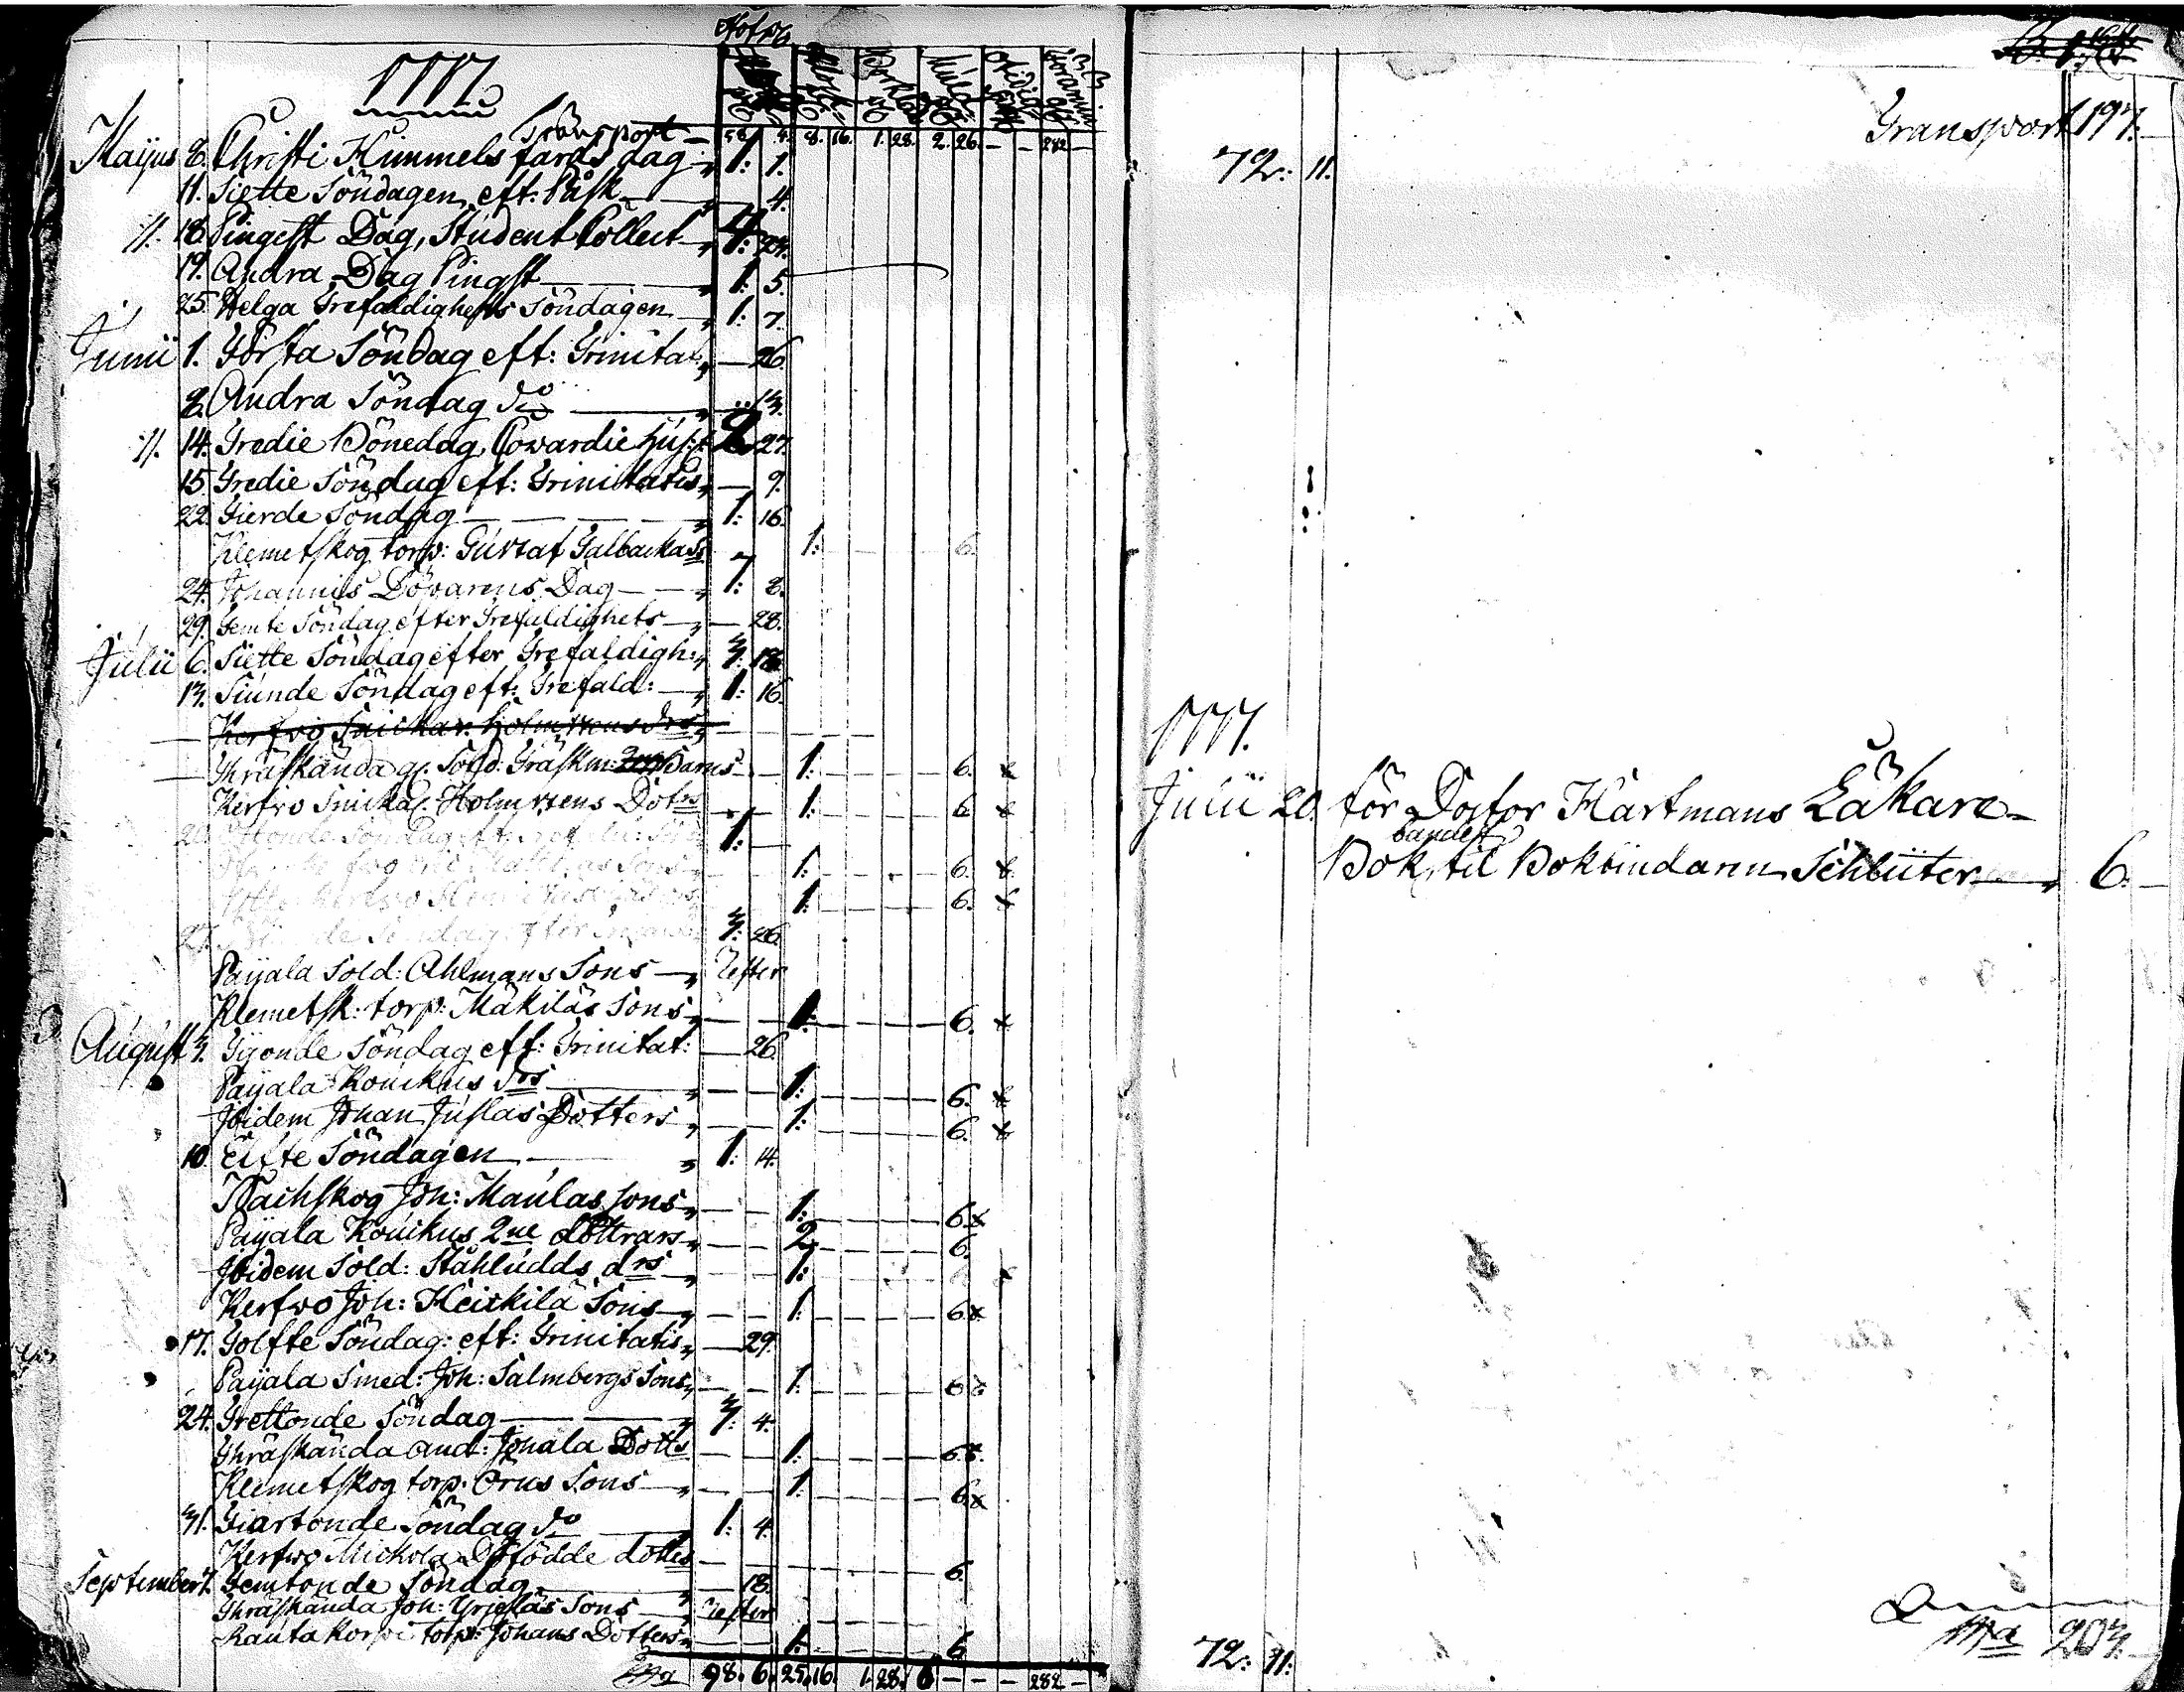 1777.
Transport — 58. 4. 8. 16. 1. 28. 2. 26. — — 282 —
Maijus 8. Christi Himmels färds dag „ 1: 1.
11. Siette Söndagen eft: Påsk — „ — 4.
//. 18. Pingest Dag, Student Collect „ 4: 24.
19. Andra Dag Pingst — „ 1: 5.
25. Helga Trefaldighets Söndagen — „ 1: 7.
Junii 1. Första Söndag eft: Trinitat: „ — 26.
8. Andra Söndag do — „ — 13.
//. 14. Tredie Bönedag, Cowardie 2. 27.
15. Tredie Söndag eft: Trinitatis „ — 9.
22. Fierde Söndag — „ 1: 16.
Klemetskog torp: Gustaf 1: — 6.
24. Johannis Döparens Dag — „ 1: 8.
29. Femte Söndag efter Trefaldighets — „ — 28.
Julii 6. Siette Söndag efter Trefaldigh: „ 3: 18.
13. Siunde Söndag eft: Trefald: — „ 1: 16.
Kerfvo Snickar: Holmstens drs
Thräskända Sold: Träskm: Barns — 1: — 6. x
Kerfvo Snickar: Holmstens Dotrs — 1: — 6. x
20. Söndag eft: 1: —
Sons — 1: — 6. x
Kerfvo — 1: — 6. x
27. Söndag efter 3: 26.
Paijala Sold: Ahlmans Sons — „ Efter
Klemetsk: torp: Mäkiläs Sons „ — 1: — 6. x
August 3. Tijonde Söndag eft: Trinitat: — 26.
Paijala Kouckus drs „ — 1: — 6. x
Ibidem Johan Juslas Dotters „ — 1: — 6. x
10. Elfte Söndagen — „ 1: 14.
Nackskog Joh: Maulas sons „ — 1: — 6. x
Paijala Kouckus 2ne döttrars „ — 2: — 6.
Ibidem Sold: Ståhludds drs — 1: — x
Kerfvo Joh: Heickilä Sons „ — 1: — 6. x
17. Tolfte Söndag: eft: Trinitatis „ — 29.
Paijala Smed: Joh: Salmbergs Sons „ — 1: — 6. x.
24. Trettonde Söndag — „ 3: 4.
Thräskända And: Johala Dotts — 1: — 6. x.
Klemetskog torp: Orus Sons — „ — 1: — 6. x
31. Fiortonde Söndag do — 1: 4.
Kerfvo Mickola Döfödde dotters — 6.
September 7. Femtonde Söndag — „ — 18.
Thräskända Joh: Yrjeläs Sons — Efter
Rautakorpi torp: Johans Dotters „ — 1: — 6.
98. 6. 25. 16. 1. 28. 6. — — — 282 —
Transport 197: —
72: 11.
1777.
Julii 20. för Doctor Hartmans Läkare-
bandet
Bok, til Bokbindaren Schlüter — „ 6. —
Summa 203. —
72: 11: